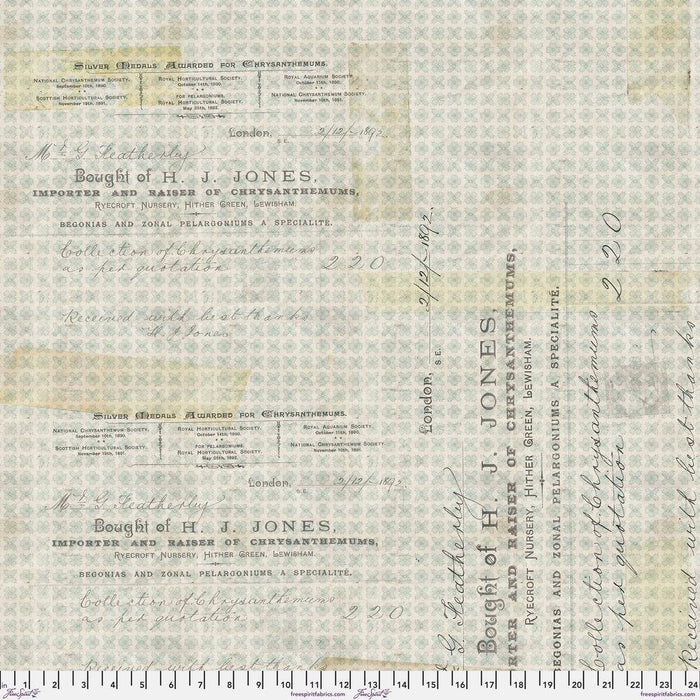 Silver Medals Awarded for Chrysanthemums.
National Chrysanthemum Society. September 10th, 1890.
Scottish Horticultural Society. November 19th, 1891.
Royal Horticultural Society. October 14th, 1890.
FOR PELARGONIUMS.
Royal Horticultural Society. May 25th, 1892.
Royal Aquarium Society. October 11th, 1890.
National Chrysanthemum Society. November 10th, 1891.
London, 2/12/- 1892.
S.E.
Mr G Featherley
Bought of H. J. JONES,
IMPORTER AND RAISER OF CHRYSANTHEMUMS,
Ryecroft Nursery, Hither Green, Lewisham.
BEGONIAS AND ZONAL PELARGONIUMS A SPECIALITÉ.
Collection of Chrysanthemums
as per quotation 2 2 0
Received with best thanks
H. J. Jones
Silver Medals Awarded for Chrysanthemums.
National Chrysanthemum Society. September 10th, 1890.
Scottish Horticultural Society. November 19th, 1891.
Royal Horticultural Society. October 14th, 1890.
FOR PELARGONIUMS.
Royal Horticultural Society. May 25th, 1892.
Royal Aquarium Society. October 11th, 1890.
National Chrysanthemum Society. November 10th, 1891.
London, 2/12/- 1892
S.E.
Mr G Featherley
Bought of H. J. JONES,
IMPORTER AND RAISER OF CHRYSANTHEMUMS,
Ryecroft Nursery, Hither Green, Lewisham.
BEGONIAS AND ZONAL PELARGONIUMS A SPECIALITÉ.
Collection of Chrysanthemums
as per quotation 2 2 0
Received with best thanks
London, 2/12/- 1892.
S.E.
G Featherley
Bought of H. J. JONES,
RTER AND RAISER OF CHRYSANTHEMUMS,
Ryecroft Nursery, Hither Green, Lewisham.
BEGONIAS AND ZONAL PELARGONIUMS A SPECIALITÉ.
Collection of Chrysanthemums
as per quotation 2 2 0
Received with best thanks
in 1 2 3 4 5 6 7 8 9 10 11 12 13 14 15 16 17 18 19 20 21 22 23 24
FreeSpirit freespiritfabrics.com FreeSpirit freespiritfabrics.com